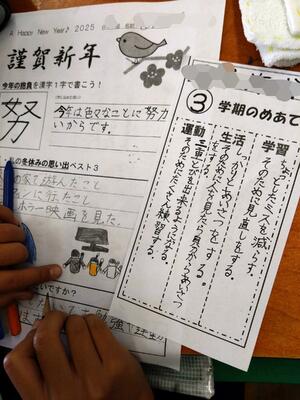 A Happy New Year♪ 2025
謹賀新年
今年の抱負を漢字1字で書こう!
努
今年は色々なことに努力
いからです。
の冬休みの思い出ベスト3
家で遊んだこと
に行たこと
ホラー映画を見た。
ですか?
③ 学期のめあて
学習
ちょっとしたミスを減らす。
そのために見直しをする。
生活
しっかりとあいさつをする。
運動
三重とびを出来るようにする。
そのためにたくさん練習する。